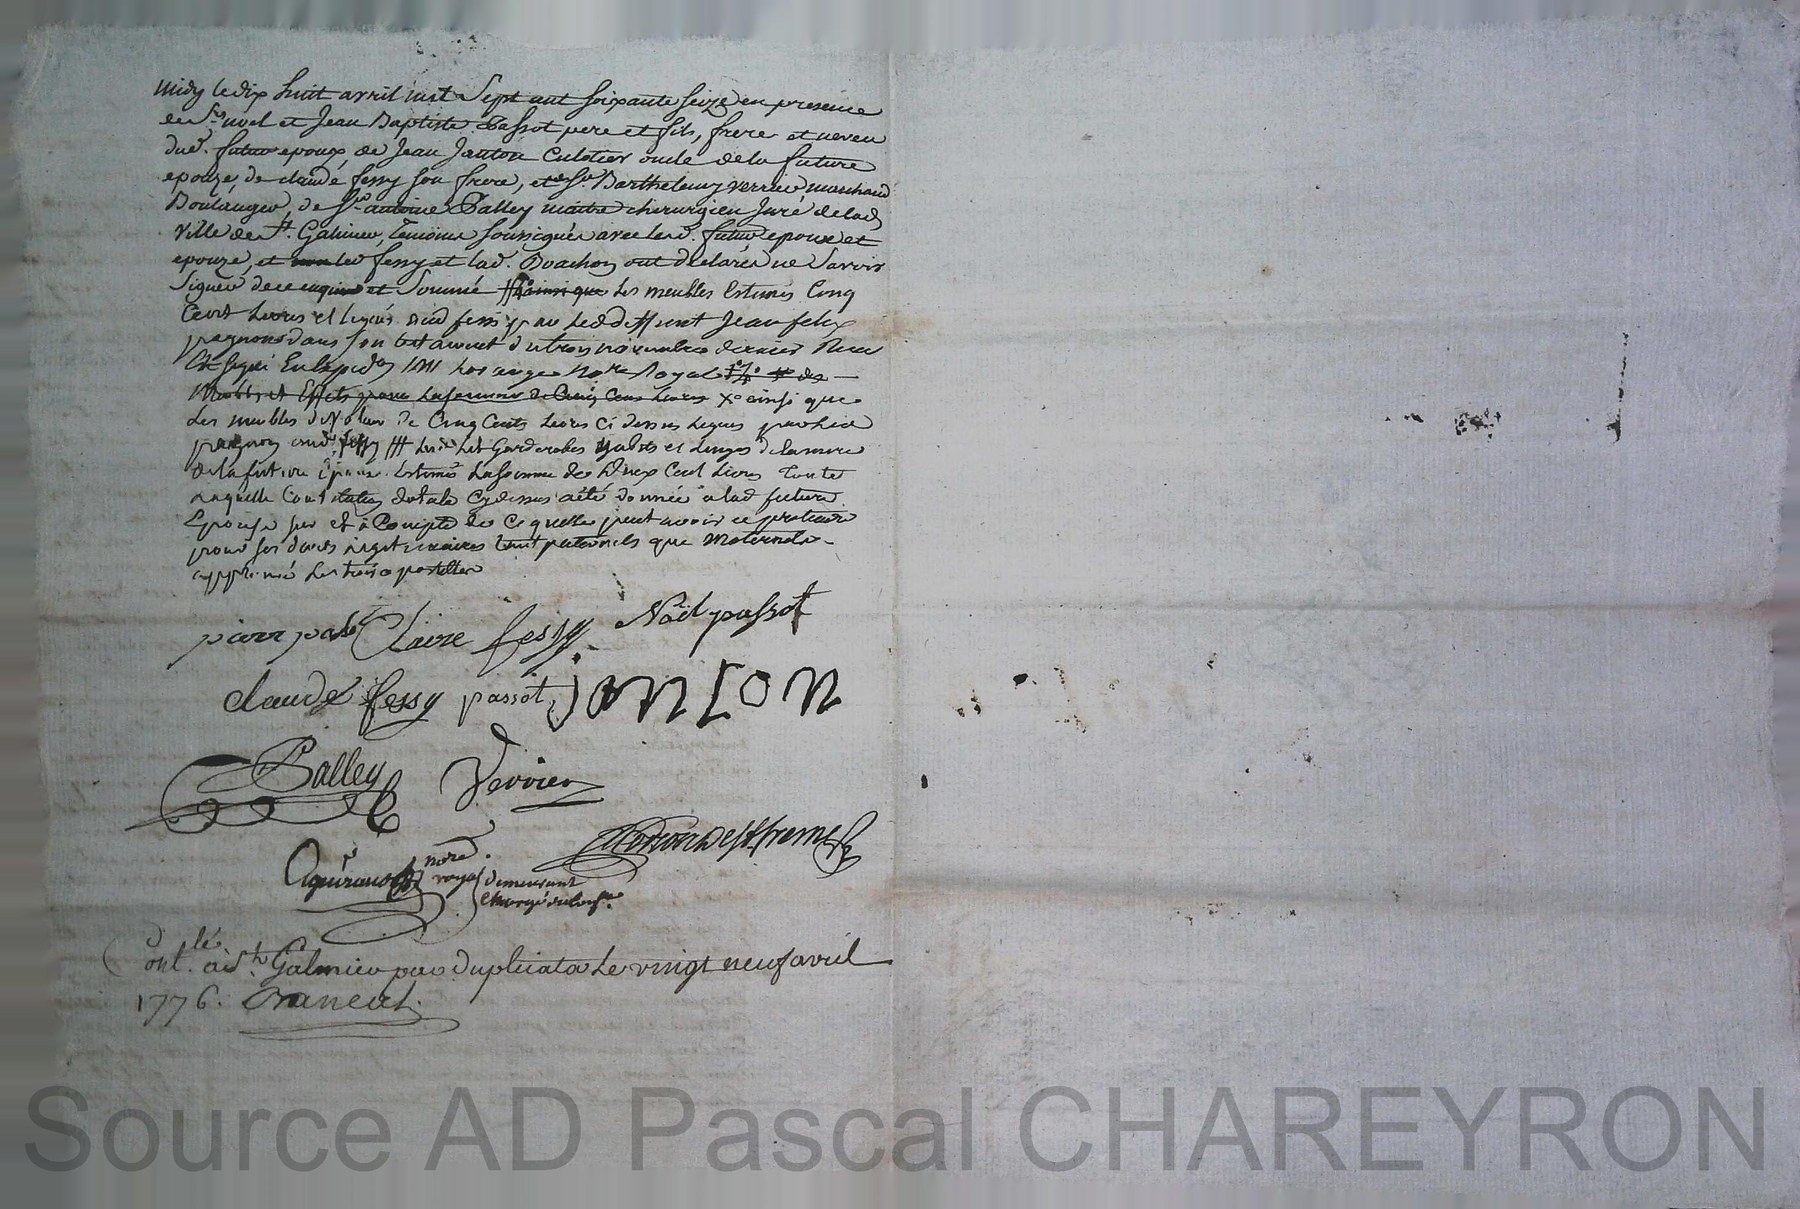 midy le dix huit avril mil Sept cent soixante seize en presence
de Sr. noel et Jean Baptiste Passot pere et fils, frere et neveu
dud. futur epoux, de Jean Janton Culotier oncle de la future
epouze, de claude fessy son frere, et de Sr. Barthelemy verrier marchand
Boulanger, de Sr. antoine Balley maitre chirurgien Juré de lad.
ville de St. Galmier, temoins soussignés avec lesd. futur epoux et
epouze, et led fessy et lad. Boachon ont declarés ne Savoir
Signer de ce enquis et Sommé ainsi que les meubles Estimés Cinq
Cent Livres et legués aud fessy par led deffunt Jean felix
pagnon dans son testament du trois novembre dernier Reçu
Et Signé no.re Royal des
Meubles et Effets pour la somme de Cinq Cens Livres X ainsi que
les meubles de valeur de Cinq Cents Livres ci dessus legues par led
pagnon aud. fessy /// Garderobes habits et linges de la mere
de la future Epouse Estimés la somme de deux Cent Livres toute
laquelle Constitution dotale cy dessus a été donnée a lad future
Epouse sur et à Compte de ce quelle peut avoir et pretendre
pour ses droits legitimaires tant paternels que Maternels
approuvé les trois apostilles
pierre passot Claire fessy Noël passot
claude fessy passot janton
Balley Verrier
no.re
royal demeurant
Con.lé a St. Galmier par duplicata le vingt neuf avril
1776.
Source AD Pascal CHAREYRON